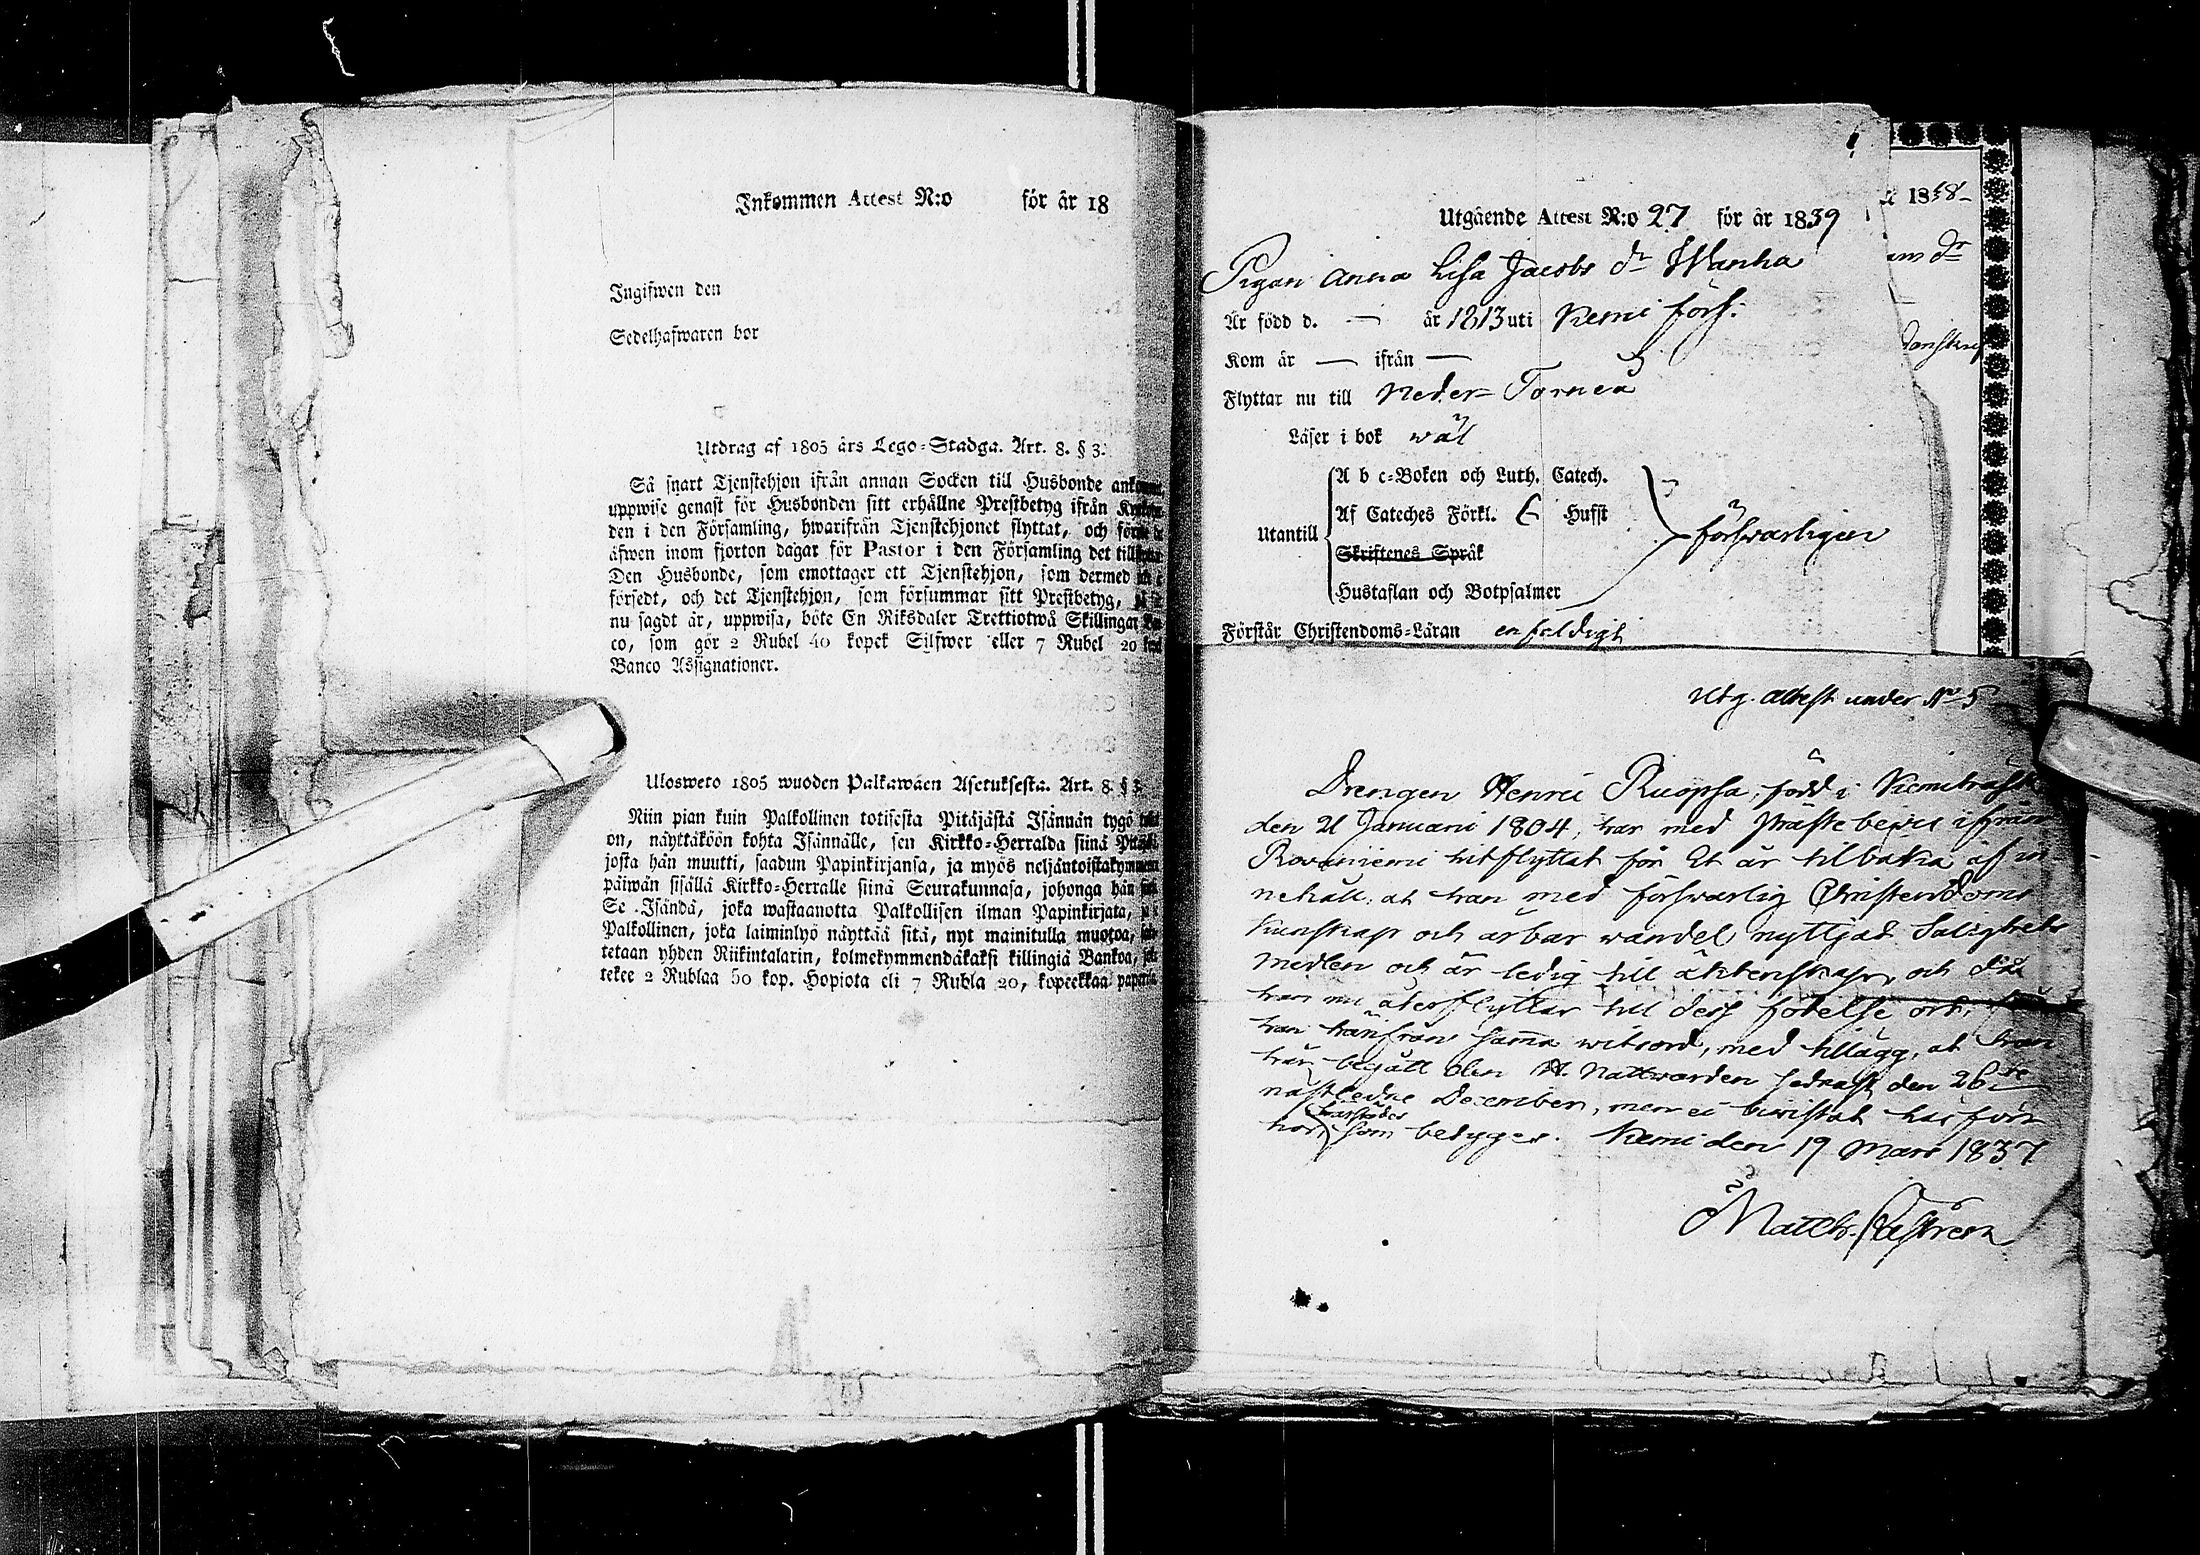 Inkommen Attest N:o för år 18
Ingifwen den
Sedelhafwaren bor
Utdrag af 1805 års Lego-Stadga. Art. 8. § 3.
Så snart Tjenstehjon ifrån annan Socken till Husbonde
uppwise genast för Husbonden sitt erhållne Prestbetyg ifrån
den i den Församling, hwarifrån Tjenstehjonet flyttat, och
äfwen inom fjorton dagar för Pastor i den Församling det
Den Husbonde, som emottager ett Tjenstehjon, som dermed
försedt, och det Tjenstehjon, som försummar sitt Prestbetyg,
nu sagdt är, uppwisa, böte En Riksdaler Trettiotwå Skillingar
co, som gör 2 Rubel 40 kopek Silfwer eller 7 Rubel 20
Banco Assignationer.
Ulosweto 1805 wuoden Palkawäen Asetuksesta. Art. 8. § 3.
Niin pian kuin Palkollinen totisesta Pitäjästä Isännän tygö
on, näyttäköön kohta Isännälle, sen Kirkko-Herralda siinä
josta hän muutti, saadun Papinkirjansa, ja myös neljäntoistakymmenen
päiwän sisällä Kirkko-Herralle siinä Seurakunnasa, johonga hän
Se Isändä, joka wastaanotta Palkollisen ilman Papinkirjata,
Palkollinen, joka laiminlyö näyttää sitä, nyt mainitulla muotoa,
tetaan yhden Riikintalarin, kolmekymmendäkaksi killingiä Bankoa,
tekee 2 Rublaa 50 kop. Hopiota eli 7 Rubla 20, kopeekkaa
Utgående Attest N:o 27 för år 1839
Pigan Anna Lisa Jacobs dr Wanha
Är född d. — år 1813 uti Kemi förs:
Kom år — ifrån —
Flyttar nu till Neder-Torneå
Läser i bok wäl
Utantill
A b c-Boken och Luth. Catech.
Af Cateches Förkl. Hufst
Skriftenes Språk
Hustaflan och Botpsalmer
försvarligen
Förstår Christendoms-Läran enfaldigt
1838
Utg. attest under No 5
Drengen Henric Ruopsa, född i Kemiträsk
den 21 Januarii 1804, har med prästebevis ifrån
Rovaniemi hitflyttat för Et år tilbaka af in-
nehåll: at han med försvarlig Christendoms
kunskap och ärbar wandel nyttjat Salighets
medlen och är ledig till äktenskap, och då
han nu återflyttar till dess födelse ort,
han härifrån samma witsord, med tillägg, at han
här begått den H. Nattwarden sednast den 26de
nästledne December, men ej biwistat
härstädes
som betyges. Kemi den 19 Mars 1837
Matth. Castrén